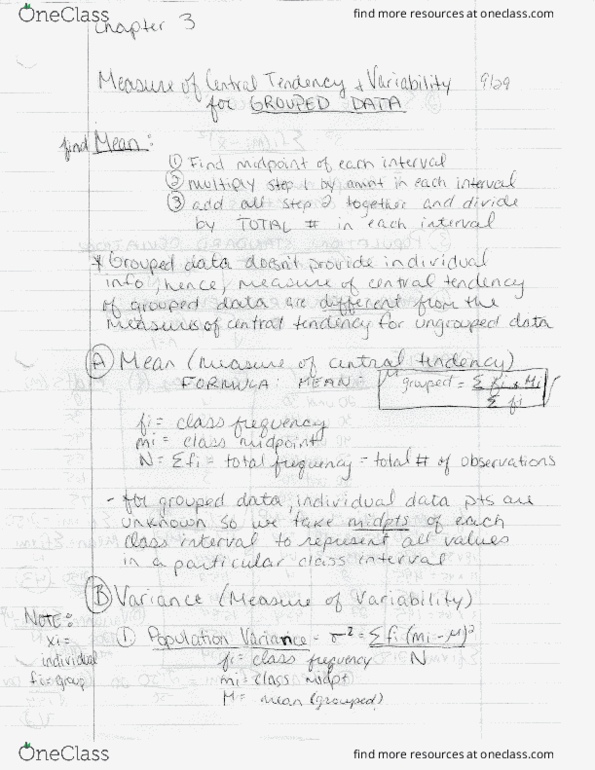 OneClass
find more resources at oneclass.com
Chapter 3
Measure of Central Tendency + Variability 9/29
for GROUPED DATA
find Mean:
① Find midpoint of each interval
② multiply step 1 by amnt in each interval
③ add all step 2 together and divide
by TOTAL # in each interval
* Grouped data doesn't provide individual
info, hence, measure of central tendency
of grouped data are different from the
measures of central tendency for ungrouped data
Ⓐ Mean (measure of central tendency)
FORMULA: MEAN = μ grouped = Σ fi × Mi
Σ fi
fi = class frequency
mi = class midpoint
N = Σfi = total frequency = total # of observations
- for grouped data, individual data pts are
unknown so we take midpts of each
class interval to represent all values
in a particular class interval
Ⓑ Variance (Measure of Variability)
NOTE:
xi =
individual
fi = group
① Population Variance = σ² = Σ fi (mi - μ)²
N
fi = class frequency
mi = class midpt
M = mean (grouped)
OneClass
find more resources at oneclass.com